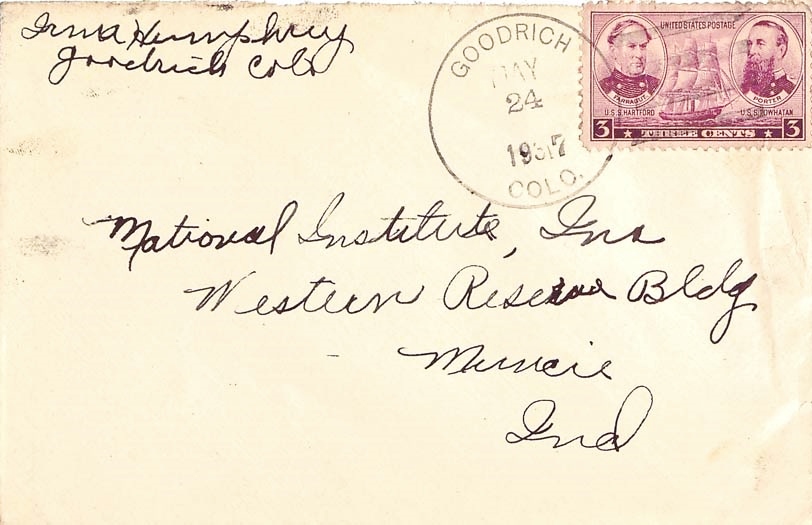 Irma Humphrey
Goodrich Colo
GOODRICH
MAY
24
1937
COLO.
UNITED STATES POSTAGE
FARRAGUT
PORTER
U.S.S. HARTFORD
U.S.S. POWHATAN
3 THREE CENTS 3
National Institute, Inc
Western Reserve Bldg
Muncie
Ind